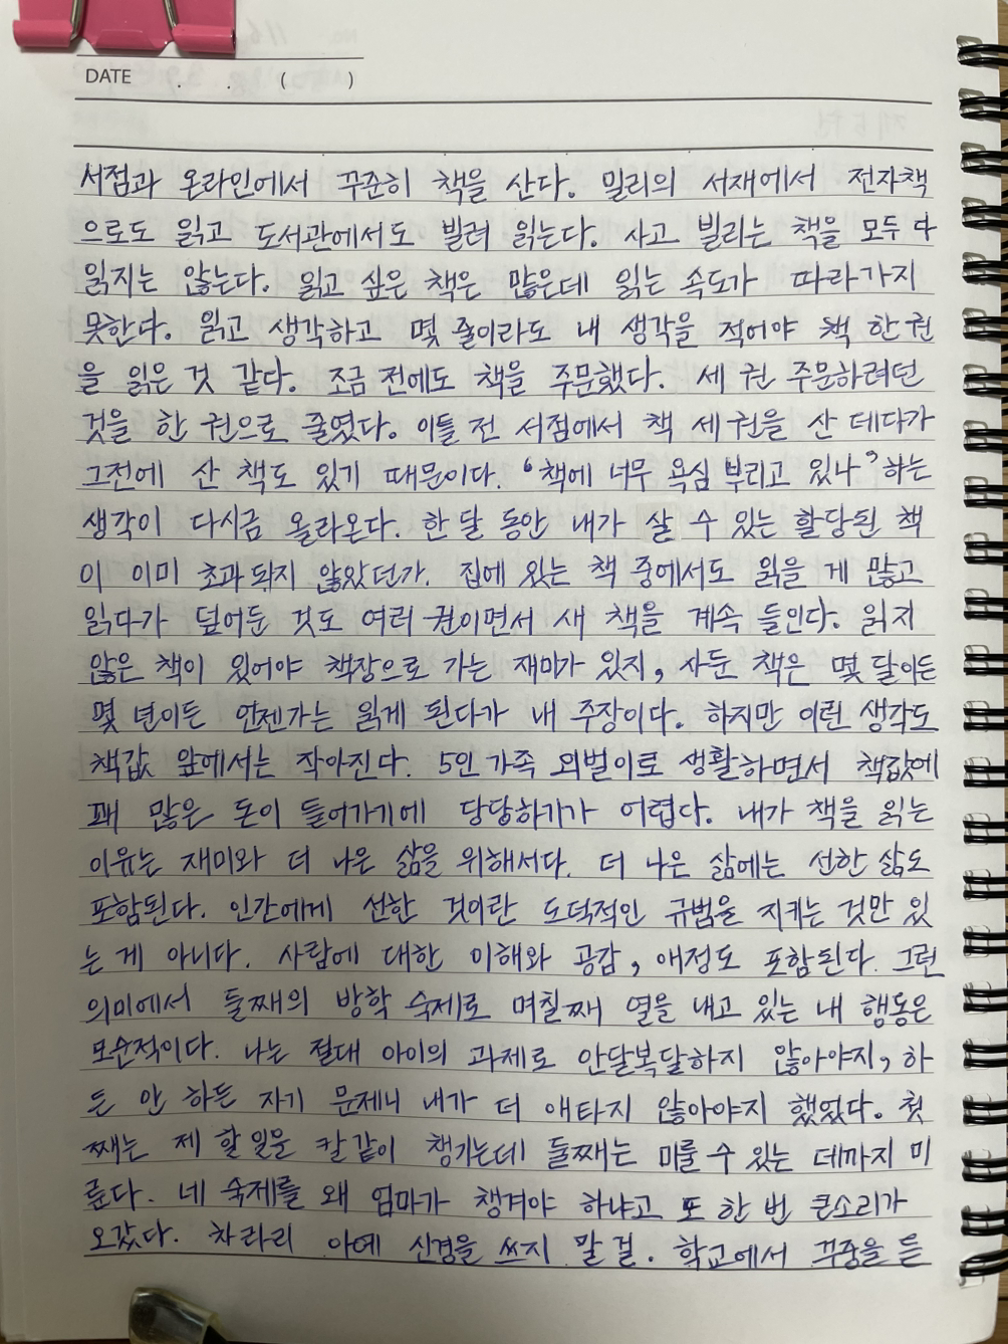 DATE . . ( )
서점과 온라인에서 꾸준히 책을 산다. 밀리의 서재에서 전자책
으로도 읽고 도서관에서도 빌려 읽는다. 사고 빌리는 책을 모두 다
읽지는 않는다. 읽고 싶은 책은 많은데 읽는 속도가 따라가지
못한다. 읽고 생각하고 몇 줄이라도 내 생각을 적어야 책 한 권
을 읽은 것 같다. 조금 전에도 책을 주문했다. 세 권 주문하려던
것을 한 권으로 줄였다. 이틀 전 서점에서 책 세 권을 산 데다가
그전에 산 책도 있기 때문이다. '책에 너무 욕심 부리고 있나' 하는
생각이 다시금 올라온다. 한 달 동안 내가 살 수 있는 할당된 책
이 이미 초과되지 않았던가. 집에 있는 책 중에서도 읽을 게 많고
읽다가 덮어둔 것도 여러 권이면서 새 책을 계속 들인다. 읽지
않은 책이 있어야 책장으로 가는 재미가 있지, 사둔 책은 몇 달이든
몇 년이든 언젠가는 읽게 된다가 내 주장이다. 하지만 이런 생각도
책값 앞에서는 작아진다. 5인 가족 외벌이로 생활하면서 책값에
꽤 많은 돈이 들어가기에 당당하기가 어렵다. 내가 책을 읽는
이유는 재미와 더 나은 삶을 위해서다. 더 나은 삶에는 선한 삶도
포함된다. 인간에게 선한 것이란 도덕적인 규범을 지키는 것만 있
는 게 아니다. 사람에 대한 이해와 공감, 애정도 포함된다. 그런
의미에서 둘째의 방학 숙제로 며칠째 열을 내고 있는 내 행동은
모순적이다. 나는 절대 아이의 과제로 안달복달하지 않아야지, 하
든 안 하든 자기 문제니 내가 더 애타지 않아야지 했었다. 첫
째는 제 할 일을 칼같이 챙기는데 둘째는 미룰 수 있는 데까지 미
룬다. 네 숙제를 왜 엄마가 챙겨야 하냐고 또 한 번 큰소리가
오갔다. 차라리 아예 신경을 쓰지 말 걸. 학교에서 꾸중을 듣